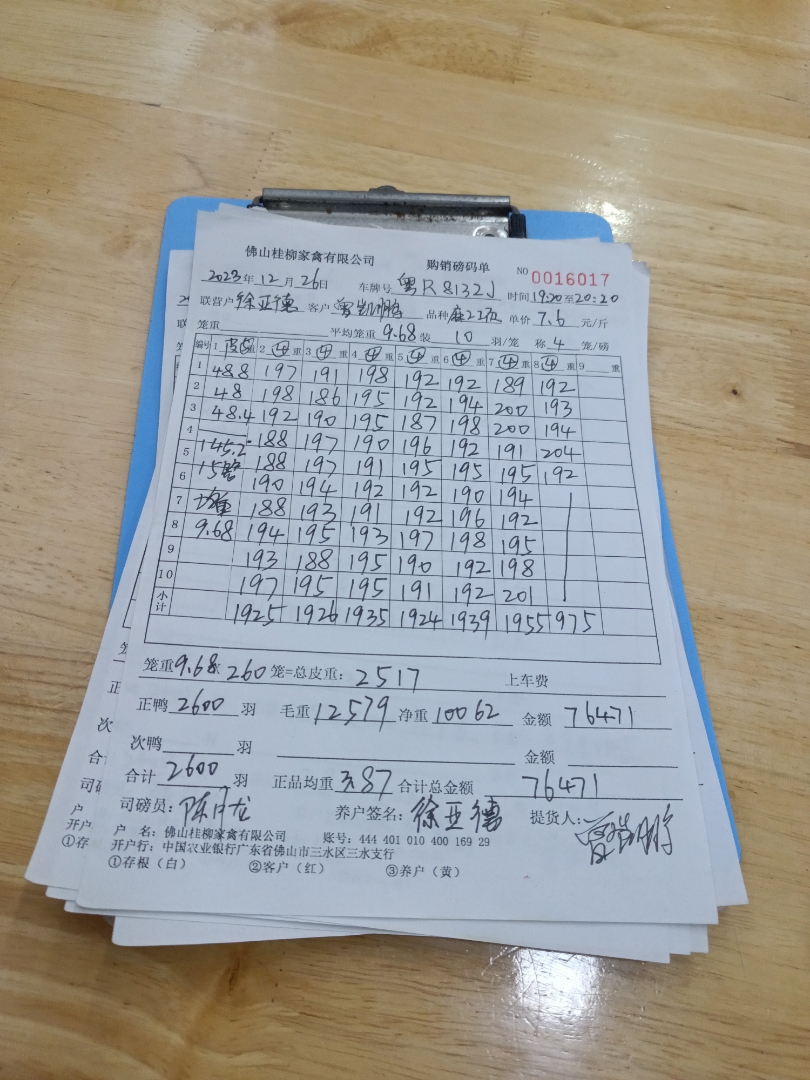 佛山桂柳家禽有限公司 购销磅码单 NO 0016017
2023年12月26日 车牌号 粤R8132J 时间19:20至20:20
联营户 徐亚德 客户 曾凯鹏 品种 单价 7.6 元/斤
笼重 平均笼重 9.68 装 10 羽/笼 称 4 笼/磅
编号 1 皮重 2 ④ 重 3 ④ 重 4 ④ 重 5 ④ 重 6 ④ 重 7 ④ 重 8 ④ 重 9 重
1 48.8 197 191 198 192 192 189 192
2 48 198 186 195 192 194 200 193
3 48.4 192 190 195 187 198 200 194
4 188 197 190 196 192 191 204
5 145.2 188 197 191 195 195 195 192
6 15笼 190 194 192 192 190 194
7 均重 188 193 191 192 196 192
8 9.68 194 195 193 197 198 195
9 193 188 195 190 192 198
10 197 195 195 191 192 201
小计 1925 1926 1935 1924 1939 1955 975
笼重9.68x260笼=总皮重：2517 上车费
正鸭 2600 羽 毛重 12579 净重 10062 金额 76471
次鸭 羽 金额
合计 2600 羽 正品均重 3.87 合计总金额 76471
司磅员： 养户签名：徐亚德 提货人：曾凯鹏
户 名：佛山桂柳家禽有限公司 账号：444 401 010 400 169 29
开户行：中国农业银行广东省佛山市三水区三水支行
①存根（白） ②客户（红） ③养户（黄）